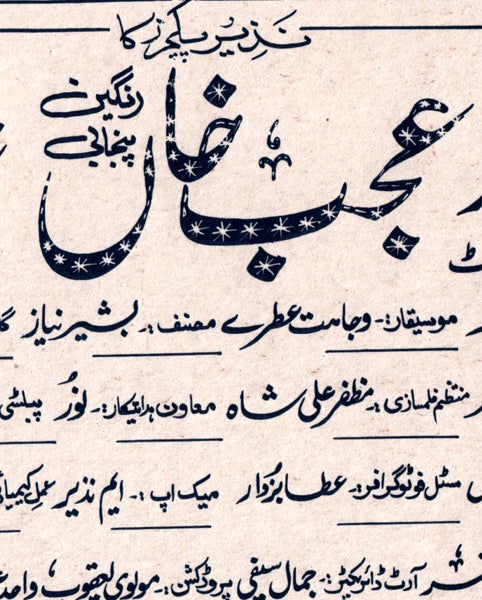 نذیر پکچرز کا
رنگین
پنجابی
عجب خاں
موسیقار:۔ وجاہت عطرے مصنف:۔ بشیر نیاز
منتظم فلمسازی:۔ مظفر علی شاہ معاون ہدائیتکار:۔ نور پبلسٹی
سٹل فوٹوگرافر:۔ عطا بزدار میک اپ:۔ ایم نذیر عمل کیمیائی
آرٹ ڈائریکٹر:۔ جمال سیفی پروڈکشن:۔ مولوی یعقوب، واحد